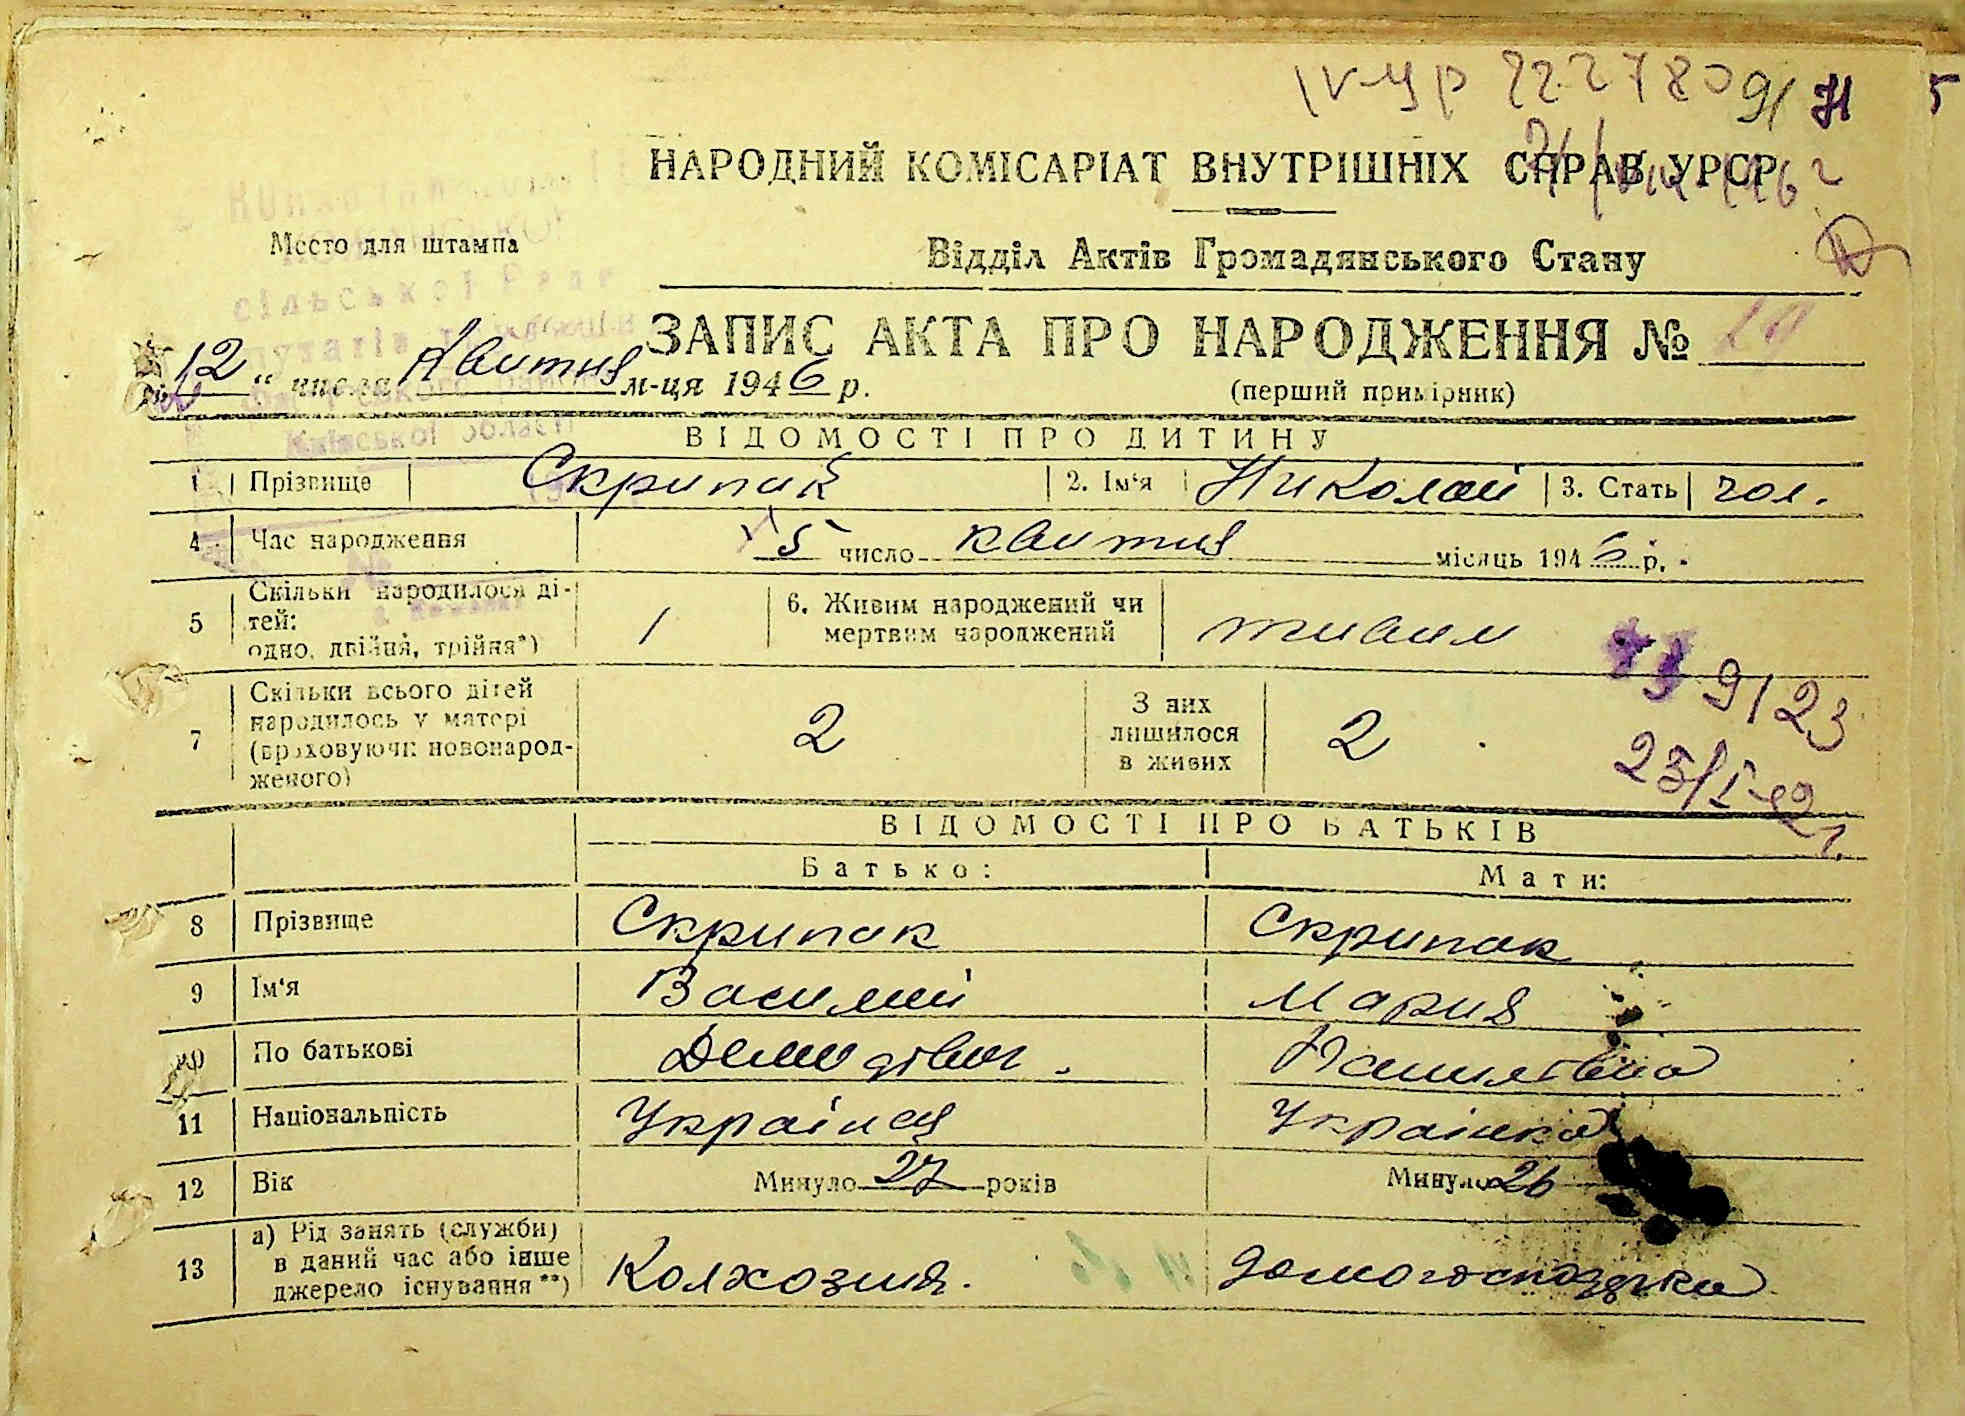 IV-УР 222780 91 Н 5
НАРОДНИЙ КОМІСАРІАТ ВНУТРІШНІХ СПРАВ УРСР
Место для штампа
Відділ Актів Громадянського Стану
сільської Ради
ЗАПИС АКТА ПРО НАРОДЖЕННЯ №
12 " числа Квитня м-ця 1946 р.
(перший примірник)
Київської області
ВІДОМОСТІ ПРО ДИТИНУ
1 Прізвище Скрипак 2. Ім'я Николай 3. Стать чол.
4 Час народження 5 число квитня місяць 1946 р.
5 Скільки народилося ді-
тей:
одно, двійня, трійня*) 1 6. Живим народжений чи
мертвим народжений живим
7 Скільки всього дітей
народилось у матері
(враховуючи новонарод-
женого) 2 З них
лишилося
в живих 2
9123
ВІДОМОСТІ ПРО БАТЬКІВ
Батько: Мати:
8 Прізвище Скрипак Скрипак
9 Ім'я Василий Мария
10 По батькові
11 Національність Українця Українка
12 Вік Минуло 27 років Минуло 26
13 а) Рід занять (служби)
в даний час або інше
джерело існування**) Колхозия. домогосподарка